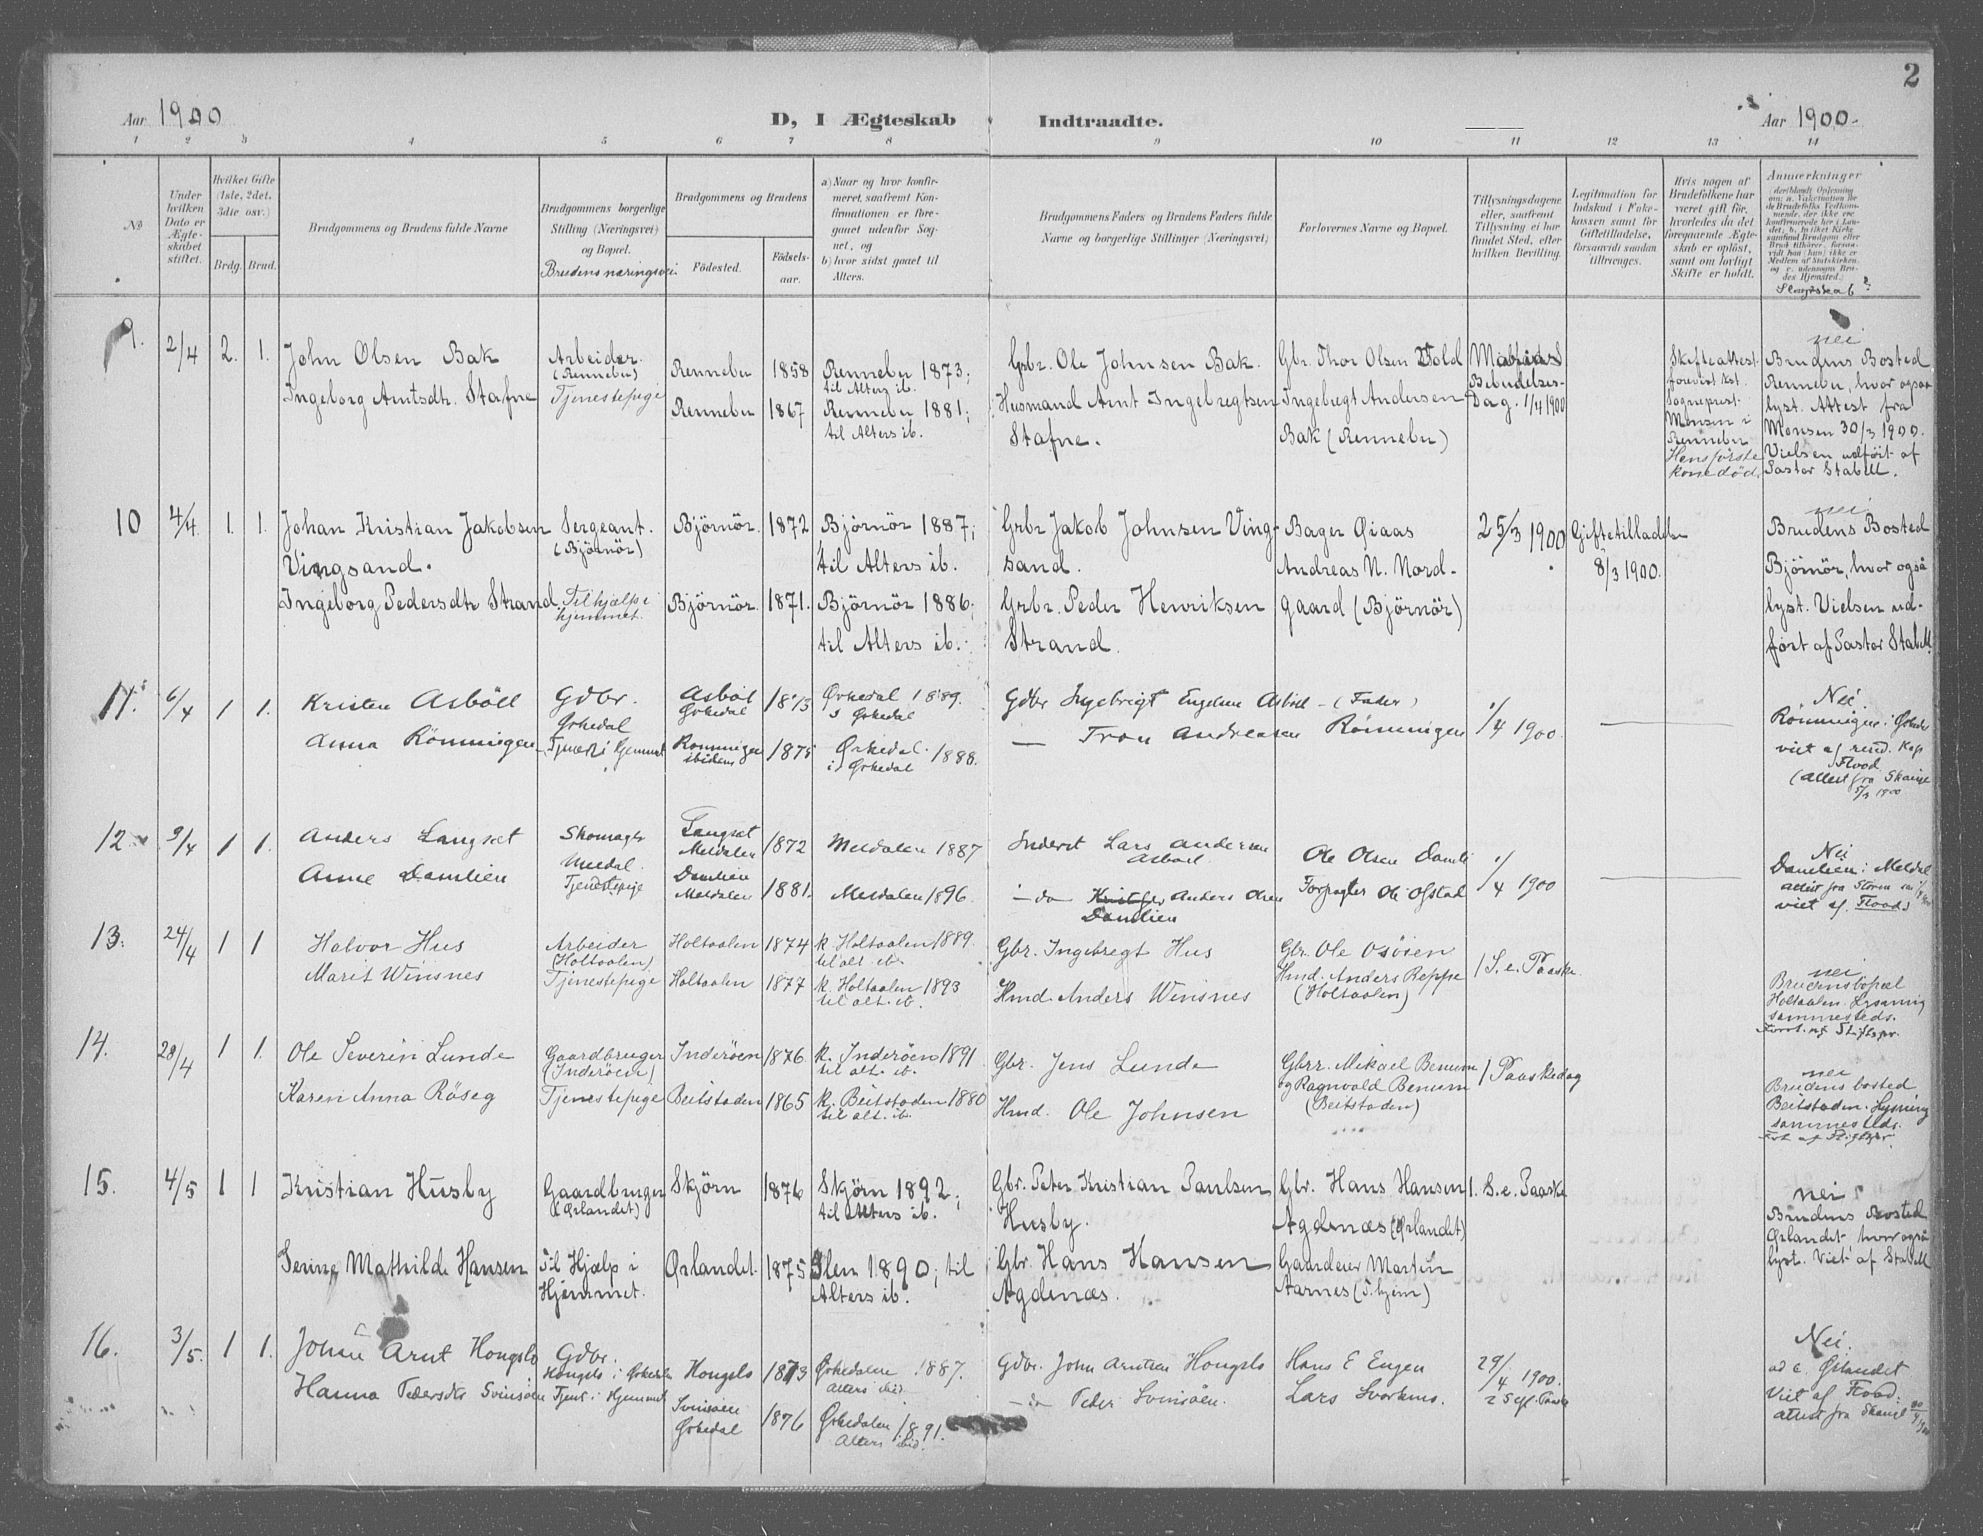 2
Aar 1900
D, I Ægteskab Indtraadte.
Aar 1900
1 2 3 4 5 6 7 8 9 10 11 12 13 14
№
Under hvilken Dato er Ægteskabet stiftet.
Hvilket Gifte (1ste, 2det, 3die osv.)
Brdg. Brud.
Brudgommens og Brudens fulde Navne
Brudgommens borgerlige Stilling (Næringsvei) og Bopæl.
Brudens næringsvei
Brudgommens og Brudens
Fødested.
Fødselsaar.
a) Naar og hvor konfirmeret, saafremt Konfirmationen er foregaaet udenfor Sognet, og
b) hvor sidst gaaet til Alters.
Brudgommens Faders og Brudens Faders fulde Navne og borgerlige Stillinger (Næringsvei)
Forlovernes Navne og Bopæl.
Tillysningsdagene eller, saafremt Tillysning ei har fundet Sted, efter hvilken Bevilling.
Legitimation for Indskud i Enkekassen samt for Giftetilladelse, forsaavidt saadan tiltrænges.
Hvis nogen af Brudefolkene har været gift før, hvorledes da det foregaaende Ægteskab er opløst, samt om lovligt Skifte er holdt.
Anmærkninger
Slægtskab?
9. 2/4 2. 1.
John Olsen Bak
Ingeborg Arntsdtr. Stafne
Arbeider.
(Rennebu)
Tjenestepige
Rennebu 1858
Rennebu 1867
Rennebu 1873;
til Alters ib.
Rennebu 1881;
til Alters ib.
Gbr. Ole Johnsen Bak.
Husmand Arnt Ingebregtsen
Stafne.
Gbr. Thor Olsen Vold
Ingebregt Andersen
Bak (Rennebu)
Marias
Bebudelses-
Dag. 1/4 1900
Skifteattest
forevist kst.
Sogneprest
Monsen i
Rennebu
Hans første
kone død.
nei
Brudens Bosted
Rennebu, hvor ogsaa
lyst. Attest fra
Monsen 30/3 1900.
Vielsen udført af
Pastor Stabell.
10 4/4 1. 1.
Johan Kristian Jakobsen
Vingsand.
Ingeborg Pedersdtr Strand
Sergeant.
(Bjørnør)
Til hjælp i
hjemmet.
Bjørnør. 1872
Bjørnør. 1871.
Bjørnør 1887;
til Alters ib.
Bjørnör 1886;
til Alters ib.
Grbr Jakob Johnsen Ving-
sand.
Grbr. Peder Henriksen
Strand.
Bager Øiaas
Andreas N. Nord-
gaard (Bjørnør)
25/3 1900
Giftetilladelse
8/3 1900.
nei
Brudens Bosted
Bjørnör, hvor også
lyst. Vielsen ud-
ført af Pastor Stabell.
11. 6/4 1 1.
Kristen Asböll
Anna Rönningen
Gdbr.
Orkedal
Tjenest i Hjemmet
Asböl
Orkedal 1873
Rønningen
ibidem 1875
Orkedal 1889.
i Orkedal
Orkedal 1888.
i Orkedal
Gdbr Ingebrigt Engelsen Asböll - (Fader)
— Tron Andreassen Rönningen
1/4 1900.
Nei.
Rønningen i Orkedal
viet af resid. Kap
Flood
(attest fra Skauge
12 9/4 1 1.
Anders Langset
Anne Damlien
Skomager
Meldal.
Tjenestepige
Langset
Meldalen 1872
Damlien
Meldalen 1881.
Meldalen 1887
Meldalen 1896.
Inderst Lars Andersen
Asböll
— do Anders Olsen
Damlien
Ole Olsen Damli
Forpagter Ole Ofstad
1/4 1900
Nei
Damlien i Meldal
attest fra Storen
viet af. Flood
13. 24/4 1 1
Halvor Hus
Marit Winsnes
Arbeider
(Holtaalen)
Tjenestepige
Holtaalen 1874
Holtaalen 1877
k. Holtaalen 1889.
til alt. ib.
k. Holtaalen 1893
til alt. ib.
Gbr. Ingebregt Hus
Hmd. Anders Winsnes
Gbr. Ole Osøien
Hmd. Anders Reppe
(Holtaalen)
1 S. e. Paaske.
nei
Brudens bopæl
Holtaalen. Lysning
sammesteds.
Forr. af Stiftspr.
14. 28/4 1 1.
Ole Severin Lunde
Karen Anna Röseg
Gaardbruger
(Inderøen)
Tjenestepige
Inderøen 1876.
Beitstaden 1865
k. Inderøen 1891
til alt. ib.
k. Beitstaden 1880
til alt. ib.
Gbr. Jens Lunde
Hmd. Ole Johnsen
Gbrr. Mikael Benum
og Ragnvald Benum
(Beitstaden)
1 Paaskedag
nei
Brudens bosted
Beitstaden. Lysning
sammesteds.
Forr. af Stiftspr.
15. 4/5 1 1
Kristian Husby
Serine Mathilde Hansen
Gaardbruger
(Ørlandet)
Til Hjælp i
Hjemmet.
Skjörn 1876
Ørlandet. 1875
Skjörn 1892;
til Alters ib.
Ilen 1890; til
Alters ib.
Gbr. Peter Kristian Paulsen
Husby.
Gbr. Hans Hansen
Agdenæs.
Gbr. Hans Hansen
Agdenæs (Ørlandet)
Gaardeier Martin
Aarnes (T.hjem)
1. S. e. Paaske
nei
Brudens Bosted
Ørlandet hvor også
lyst. Viet af Stabell
16. 3/5. 1 1.
Johan Arnt Hongslo
Hanna Pedersdtr Svinsöen
Gdbr.
Hongslo i Orkedalen
Tjent. i Hjemmet
Hongslo 1873
Svinsöen
Orkedal 1876
Orkedalen 1887.
Alters ibid.
Orkedalen 1891.
Alters ibid.
Gdbr. John Arntsen Hongslo
— do Peder Svinsöen.
Hans E Engen
Lars Svorkmo.
29/4 1900.
2 S. eft. Paaske
Nei.
ad c. Ørlandet
Viet af Flood.
attest fra Skauge